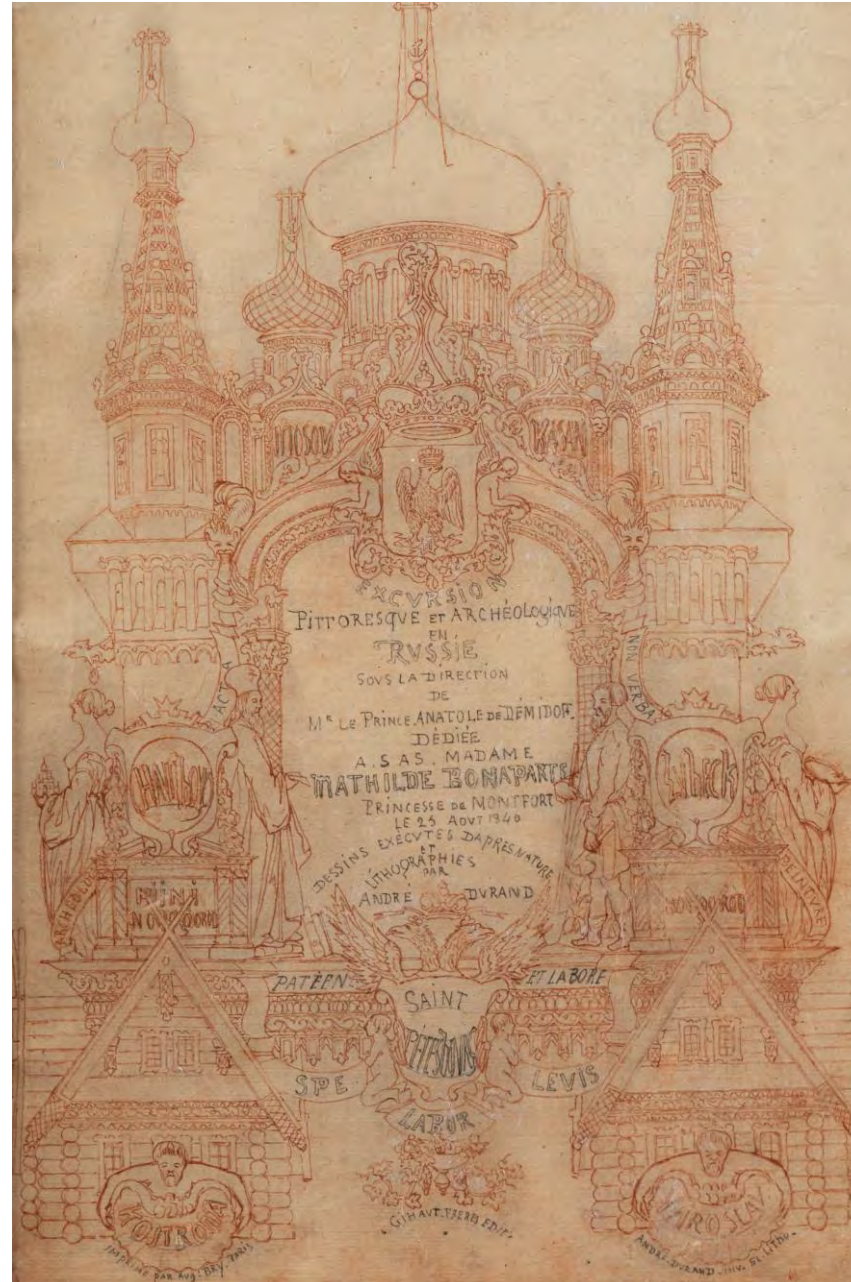 MOSOU
KASAN
EXCVRSION
PITTORESQVE ET ARCHÉOLOGIQVE
EN
RVSSIE
SOVS LA DIRECTION
DE
Mʳ LE PRINCE ANATOLE DE DÉMIDOFF.
DÉDIÉE
A. S. A S. MADAME
MATHILDE BONAPARTE
PRINCESSE DE MONTFORT
LE 25 AOVT 1840
DESSINS EXÉCVTES DAPRES NATURE
ET
LITHOGRAPHIES
PAR
ANDRÉ DVRAND
ACTA
NON VERBA
ARCHÉOLOGIE
NINI
NOVOGOROD
NOVOGOROD
PEINTVRE
ET LABORE
SAINT
PÉTERSBOURG
SPE
LABOR
LEVIS
KOSTROMA
IAROSLAV
GIHAVT FRERES EDIT.
IMPRIMÉ PAR AUG. BRY. PARIS
ANDRÉ DURAND. INV. ET. LITHO.